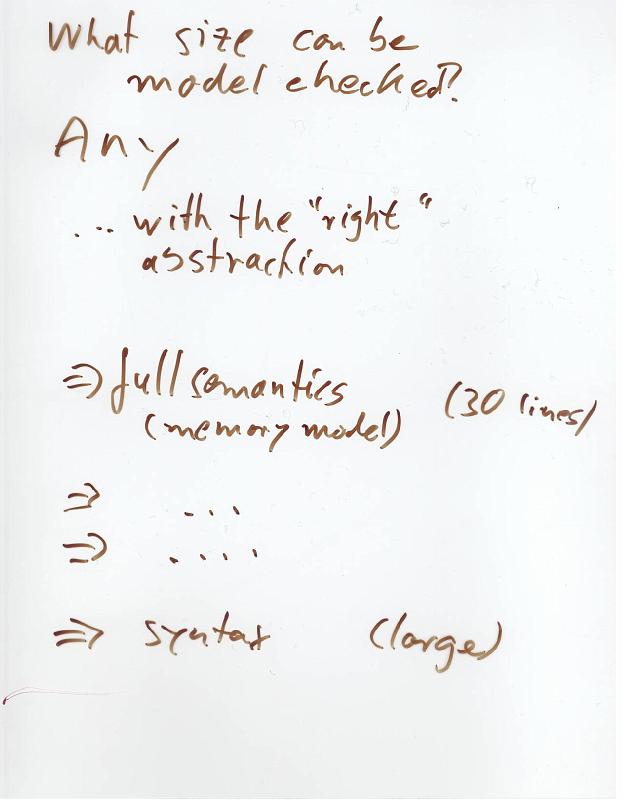 What size can be
model checked?
Any
... with the "right"
abstraction
⇒ full semantics (30 lines)
(memory model)
⇒ ...
⇒ ....
⇒ syntax (large)